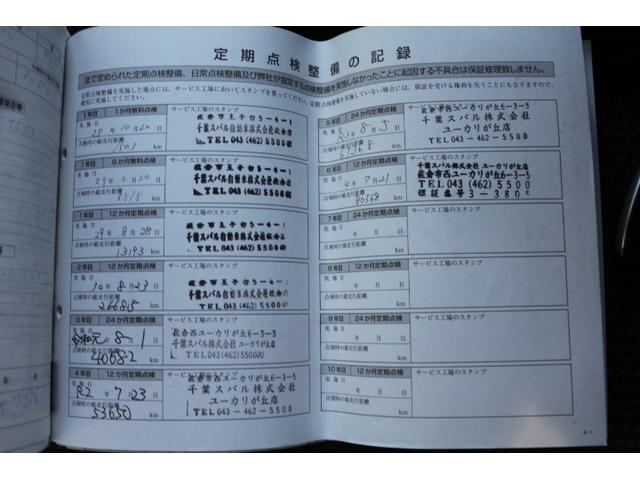 定期点検整備の記録
法で定められた定期点検整備、日常点検整備及び弊社が指定する点検整備を実施しなかったことに起因する不具合は保証修理致しません。
定期点検整備を実施した場合には、サービス工場においてスタンプを貰ってください。定期点検整備を実施していない場合には、保証を受ける権利を失うこともなりますので、
確実に実施してください。
1年目 1か月無料点検 サービス工場のスタンプ
実施日
28年10月20日
点検時の総走行距離
1503 km
佐倉市王子台5-4-1
千葉スバル自動車株式会社佐倉店
TEL 043 (462) 5500
1年目 6か月無料点検 サービス工場のスタンプ
実施日
29年2月20日
点検時の総走行距離
km
佐倉市王子台5-4-1
千葉スバル自動車株式会社佐倉店
TEL 043 (462) 5500
1年目 12か月定期点検 サービス工場のスタンプ
実施日
29年8月28日
点検時の総走行距離
13193 km
佐倉市王子台5-4-1
千葉スバル自動車株式会社佐倉店
TEL 043 (462) 5500
2年目 12か月定期点検 サービス工場のスタンプ
実施日
30年8月23日
点検時の総走行距離
26685 km
佐倉市王子台5-4-1
千葉スバル自動車株式会社佐倉店
TEL 043 (462) 5500
3年目 24か月定期点検 サービス工場のスタンプ
実施日
令和元年8月1日
点検時の総走行距離
40682 km
佐倉市西ユーカリが丘6-3-5
千葉スバル ユーカリが丘店
TEL 043(462)5500
4年目 12か月定期点検 サービス工場のスタンプ
実施日
R2年7月23日
点検時の総走行距離
53650 km
佐倉市西ユーカリが丘6-3-5
千葉スバル株式会社
ユーカリが丘店
TEL 043-462-5500
5年目 24か月定期点検 サービス工場のスタンプ
実施日
R3年8月5日
点検時の総走行距離
km
佐倉市西ユーカリが丘6-3-5
千葉スバル株式会社
ユーカリが丘店
TEL 043-462-5500
6年目 12か月定期点検 サービス工場のスタンプ
実施日
4年7月21日
点検時の総走行距離
km
千葉スバル㈱ ユーカリが丘店
佐倉市西ユーカリが丘6-3-5
TEL 043 (462) 5500
認証番号3-380
7年目 24か月定期点検 サービス工場のスタンプ
実施日
年 月 日
点検時の総走行距離
km
8年目 12か月定期点検 サービス工場のスタンプ
実施日
年 月 日
点検時の総走行距離
km
9年目 24か月定期点検 サービス工場のスタンプ
実施日
年 月 日
点検時の総走行距離
km
10年目 12か月定期点検 サービス工場のスタンプ
実施日
年 月 日
点検時の総走行距離
km